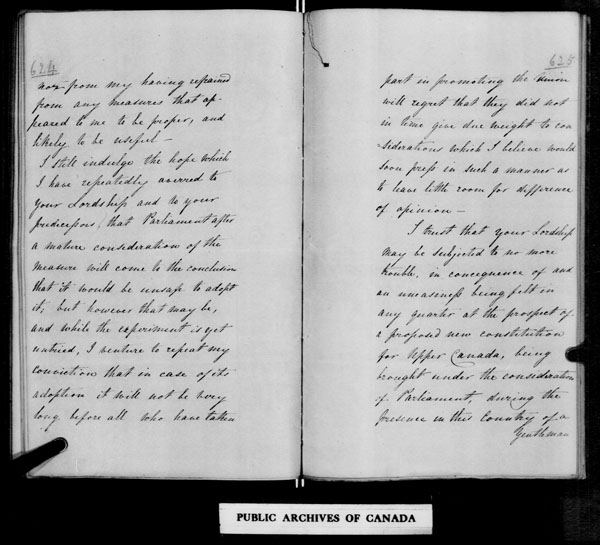 624
nor from my having refrained
from any measures that ap-
peared to me to be proper, and
likely to be useful —
I still indulge the hope which
I have repeatedly averred to
your Lordship and to your
predecessors, that Parliament after
a mature consideration of the
measure will come to the conclusion
that it would be unsafe to adopt
it; but however that may be,
and while the experiment is yet
untried, I venture to repeat my
conviction that in case of its
adoption it will not be very
long before all who have taken
625
part in promoting the Union
will regret that they did not
in time give due weight to con
siderations which I believe would
soon press in such a manner as
to leave little room for difference
of opinion —
I trust that your Lordship
may be subjected to no more
trouble, in concequence of and
an uneasiness being felt in
any quarter at the prospect of
a proposed new constitution
for Upper Canada, being
brought under the consideration
of Parliament during the
presence in this Country of a
Gentleman
PUBLIC ARCHIVES OF CANADA